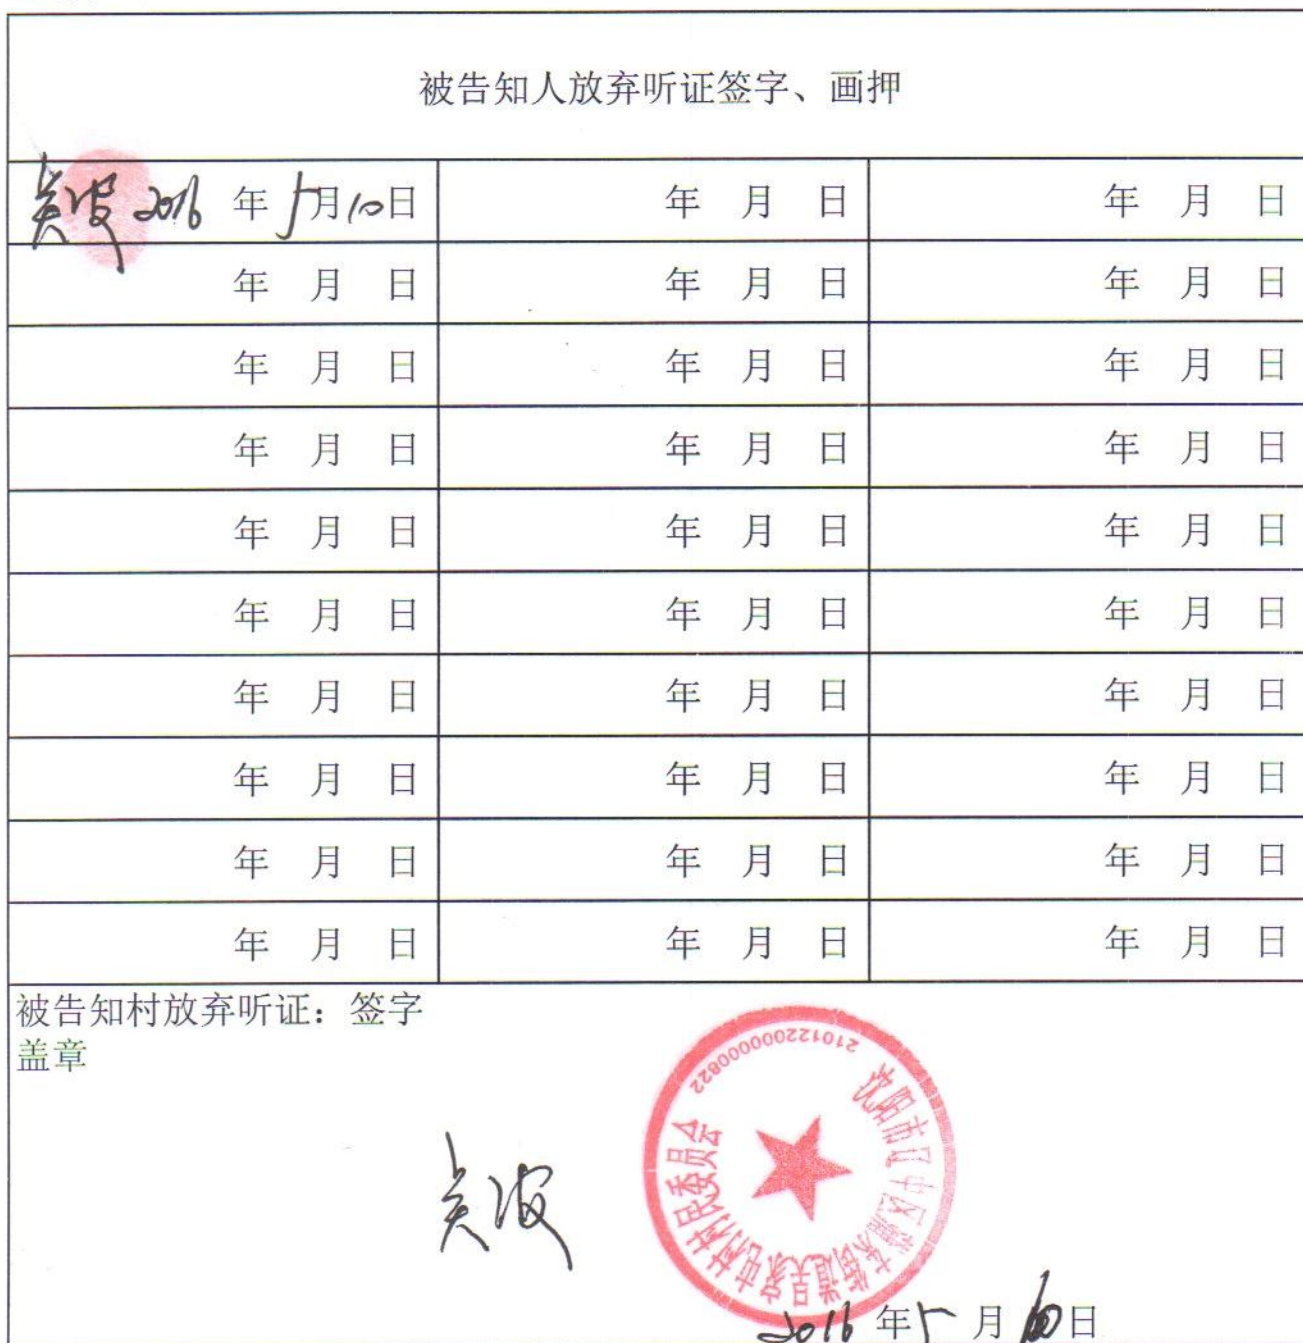 被告知人放弃听证签字、画押
吴波 2016 年 5月10日 年 月 日 年 月 日
年 月 日 年 月 日 年 月 日
年 月 日 年 月 日 年 月 日
年 月 日 年 月 日 年 月 日
年 月 日 年 月 日 年 月 日
年 月 日 年 月 日 年 月 日
年 月 日 年 月 日 年 月 日
年 月 日 年 月 日 年 月 日
年 月 日 年 月 日 年 月 日
年 月 日 年 月 日 年 月 日
被告知村放弃听证：签字
盖章
吴波
2101220000822
村村民委员会
2016 年 5 月 10日